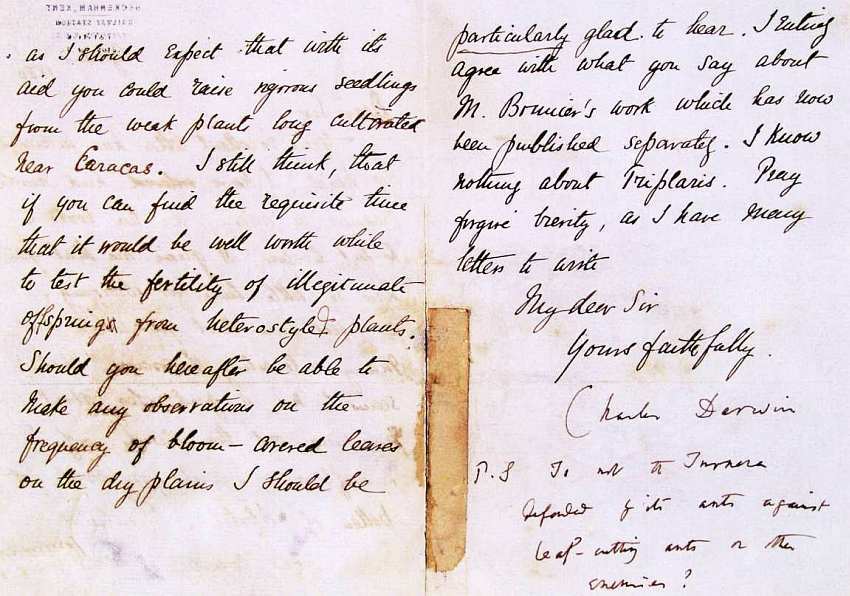 BECKENHAM, KENT
RAILWAY STATION
as I should expect that with its
aid you could raise vigorous seedlings
from the weak plants long cultivated
near Caracas. I still think, that
if you can find the requisite time
that it would be well worth while
to test the fertility of illegitimate
offspring from heterostyled plants.
Should you hereafter be able to
make any observations on the
frequency of bloom-covered leaves
on the dry plains I should be
particularly glad to hear. I entirely
agree with what you say about
M. Bonnier's work which has now
been published separately. I know
nothing about Triplaris. Pray
forgive brevity, as I have many
letters to write
My dear Sir
Yours faithfully.
Charles Darwin
P.S Is not the Turnera
defended by its ants against
leaf-cutting ants or other
enemies?